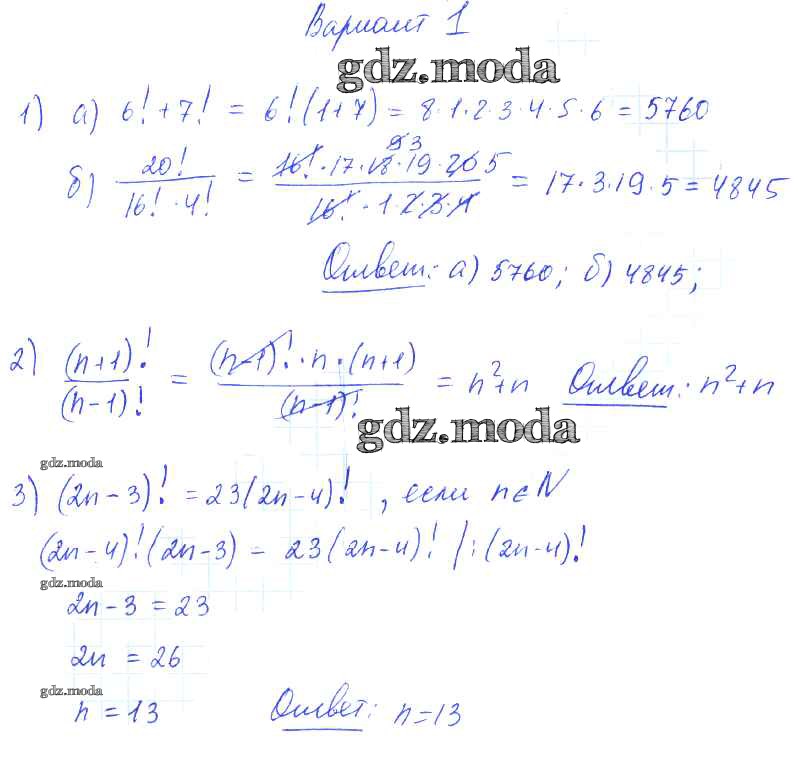 Вариант 1
gdz.moda
1) а) 6! + 7! = 6!(1+7) = 8·1·2·3·4·5·6 = 5760
б) 20!/(16!·4!) = (16!·17·18·19·20)/(16!·1·2·3·4) = 17·3·19·5 = 4845
Ответ: а) 5760; б) 4845;
2) (n+1)!/(n-1)! = ((n-1)!·n·(n+1))/(n-1)! = n²+n Ответ: n²+n
gdz.moda
gdz.moda
3) (2n-3)! = 23(2n-4)!, если n∈N
(2n-4)!(2n-3) = 23(2n-4)! |:(2n-4)!
gdz.moda
2n-3 = 23
2n = 26
gdz.moda
n = 13 Ответ: n=13